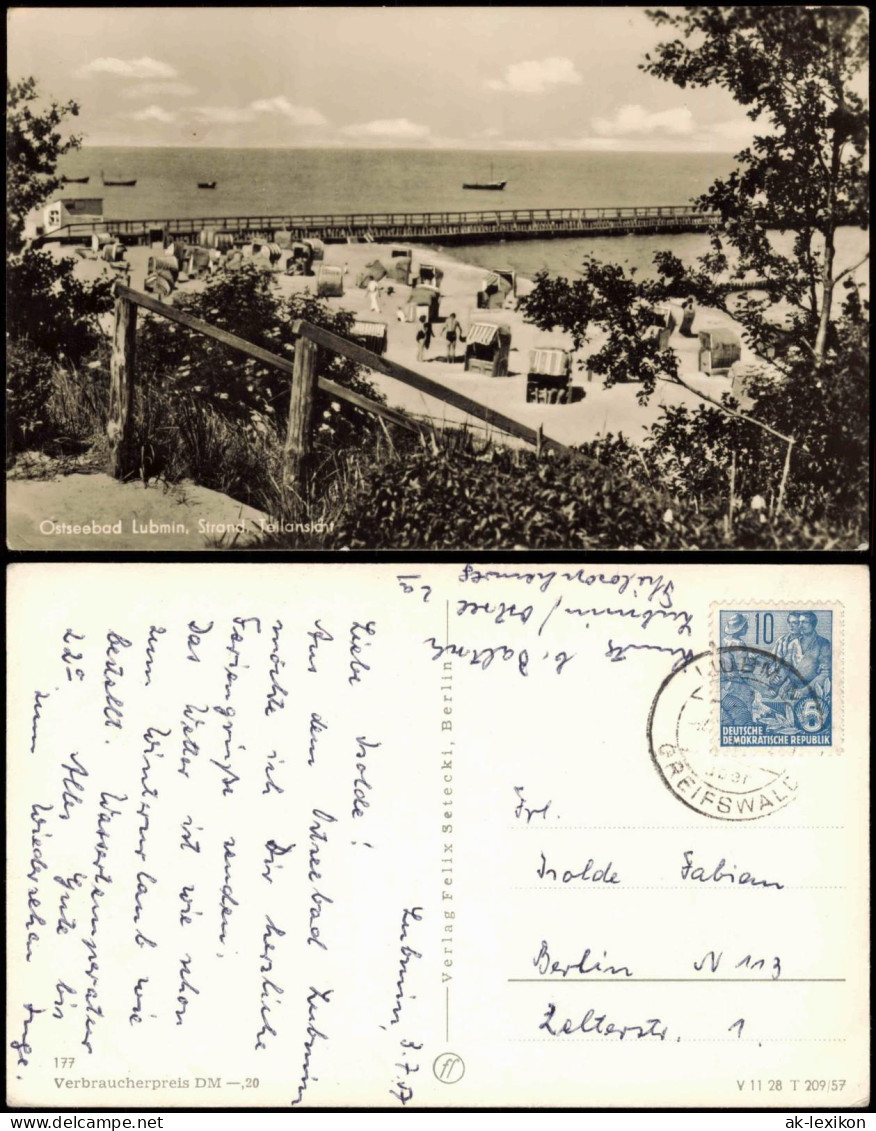 Ostseebad Lubmin, Strand, Teilansicht
Lubmin, 3.7.57
Liebe Isolde!
Aus dem Ostseebad Lubmin
möchte ich Dir herzliche
Feriengrüße senden.
Das Wetter ist wie schon
zum Winterurlaub wie
bestellt. Wassertemperatur
22° Alles Gute bis
zum Wiedersehen Inge.
b.
Lubmin/Ostsee
Philosophenweg
Verlag Felix Setecki, Berlin
10
DEUTSCHE
DEMOKRATISCHE REPUBLIK
LUBMIN
über
GREIFSWALD
Frl.
Isolde Fabian
Berlin N 113
Zelterstr. 1.
177
Verbraucherpreis DM —,20
V 11 28 T 209/57
ak-lexikon